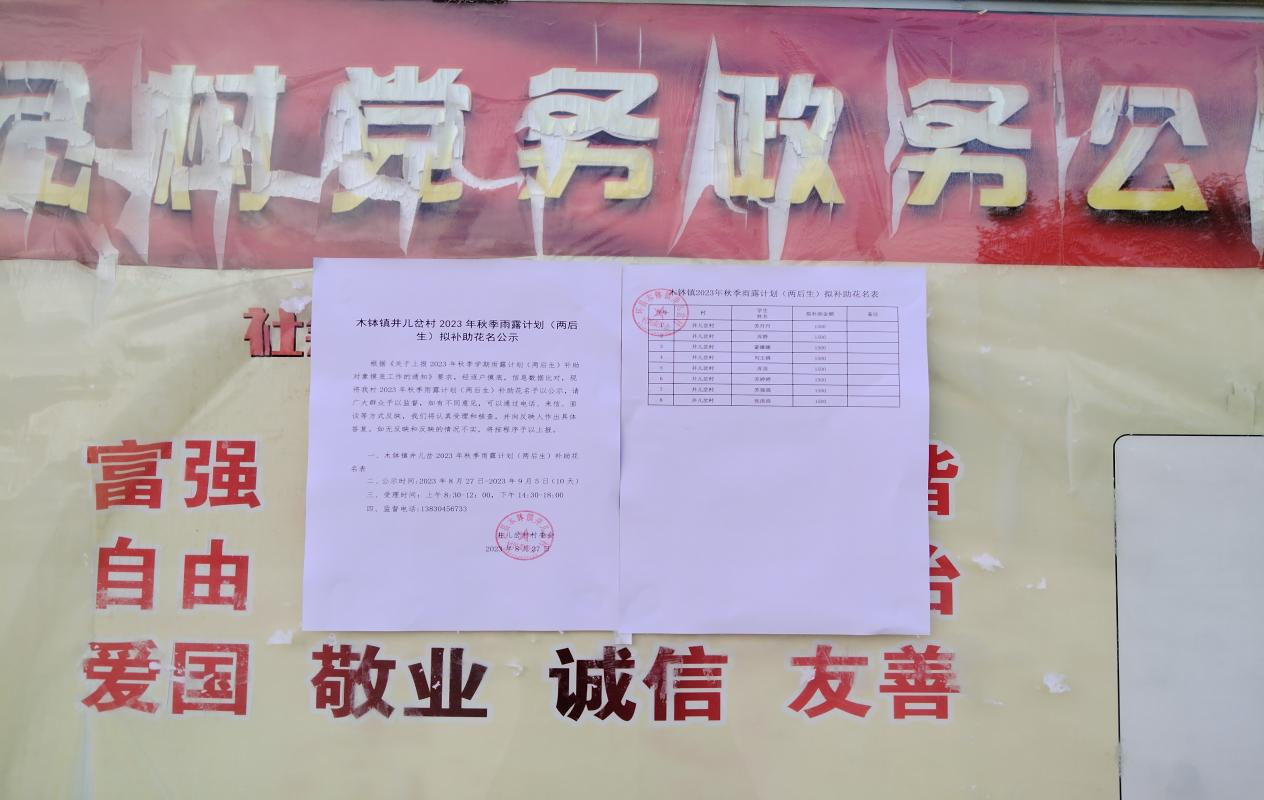 村党务政务公
木钵镇井儿岔村 2023 年秋季雨露计划（两后
生）拟补助花名公示
根据《关于上报 2023 年秋季学期雨露计划（两后生）补助
对象摸底工作的通知》要求，经逐户摸底，信息数据比对，现
将我村 2023 年秋季雨露计划（两后生）补助花名予以公示，请
广大群众予以监督，如有不同意见，可以通过电话、来信、面
谈等方式反映，我们将认真受理和核查，并向反映人作出具体
答复。如无反映和反映的情况不实，将按程序予以上报。
一、木钵镇井儿岔 2023 年秋季雨露计划（两后生）补助花
名表
二、公示时间:2023 年 8 月 27 日-2023 年 9 月 5 日(10 天)
三、受理时间：上午 8:30-12：00，下午 14:30-18:00
四、监督电话:13830456733
井儿岔村村委会
2023 年 8 月 27 日
木钵镇2023年秋季雨露计划（两后生）拟补助花名表
村 学生姓名 拟补助金额 备注
井儿岔村 1500
井儿岔村 1500
3 井儿岔村 1500
4 井儿岔村 1500
5 井儿岔村 1500
6 井儿岔村 1500
7 井儿岔村 1500
8 井儿岔村 1500
社
富强
自由
爱国 敬业 诚信 友善